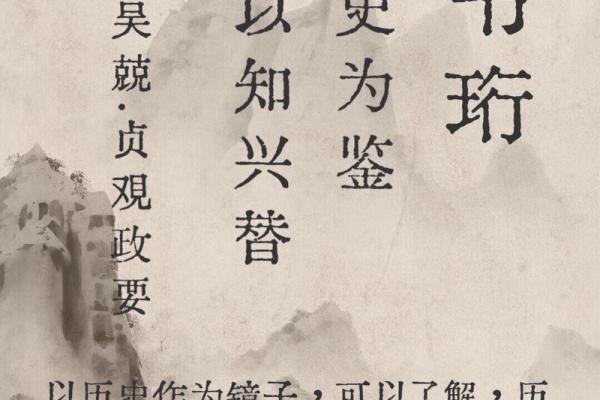 珩
史为鉴
以知兴替
吴兢·贞观政要
以历史作为镜子，可以了解，历